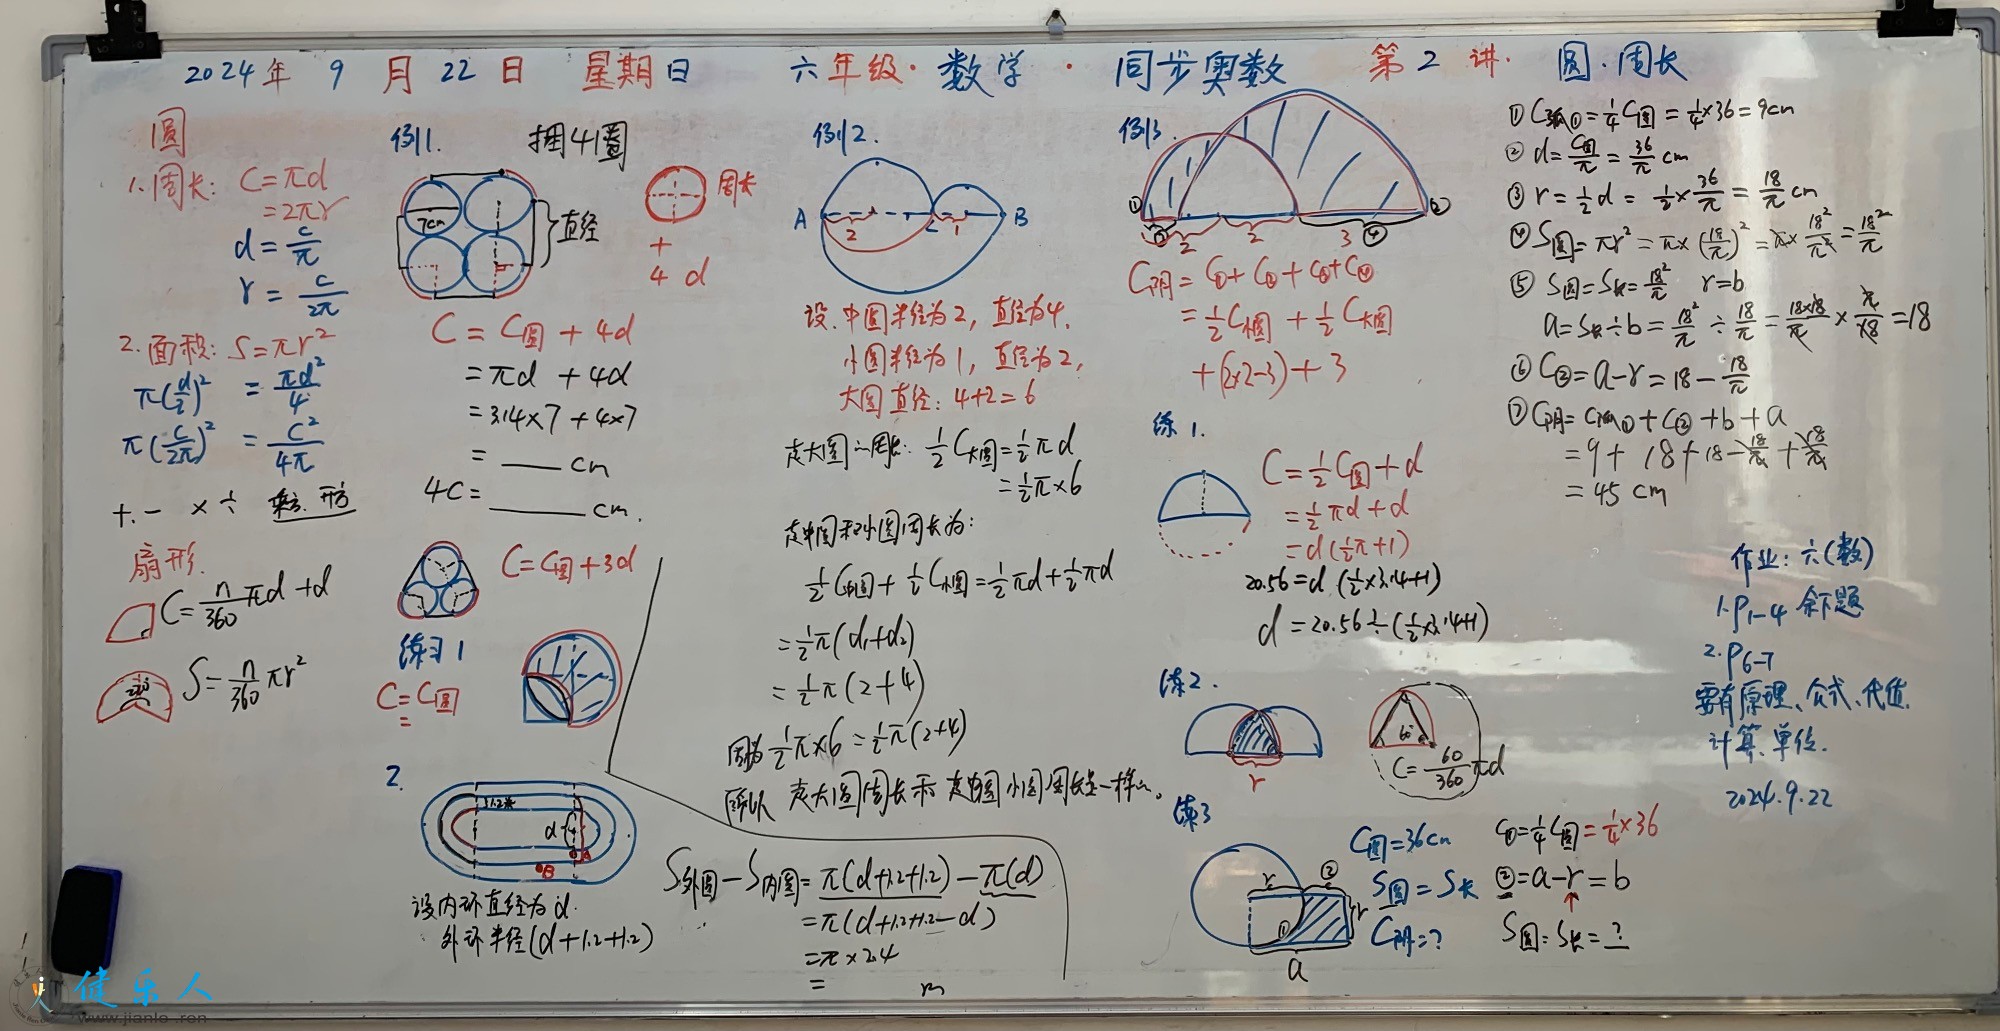 2024年 9 月 22 日 星期日 六年级·数学·同步奥数 第2讲·圆·周长
圆
1.周长: C=πd
=2πr
d=c/π
r=c/2π
2.面积: S=πr²
π(d/2)²=πd²/4
π(c/2π)²=C²/4π
+.- ×÷ 乘方.形
扇形.
C=n/360πd+d
S=n/360πr²
例1. 捆4圈
7cm
直径
周长
+
4 d
C=C圆+4d
=πd+4d
=3.14×7+4×7
=___cm
4C=_____cm.
C=C圆+3d
练习1
C=C圆
=
2.
1.2米
d
B
设内环直径为d.
外环半径(d+1.2+1.2)
S外圆-S内圆=π(d+1.2+1.2)-π(d)
=π(d+1.2+1.2-d)
=π×2.4
= m
例2.
A 2 C 1 B
设.中圆半径为2,直径为4.
小圆半径为1,直径为2,
大圆直径:4+2=6
走大圆的周长: ½C大圆=½πd
=½π×6
走中圆和小圆周长为:
½C中圆+½C小圆=½πd+½πd
=½π(d₁+d₂)
=½π(2+4)
因为½π×6=½π(2+4)
所以 走大圆周长和走中圆小圆周长是一样的。
例3.
① ③ 2 2 3 ④ ②
C阴=C①+C②+C③+C④
=½C小圆+½C大圆
+(2×2-3)+3
练1.
C=½C圆+d
=½πd+d
=d(½π+1)
20.56=d.(½×3.14+1)
d=20.56÷(½×3.14+1)
练2.
r
60°
C=60/360πd
练3
r ② r ① a
C圆=36cm
S圆=S长
C阴=?
C①=¼C圆=¼×36
②=a-r=b
S圆=S长=?
①C弧①=¼C圆=¼×36=9cm
②d=C圆/π=36/π cm
③r=½d=½×36/π=18/π cm
④S圆=πr²=π×(18/π)²=π×18²/π²=18²/π
⑤S圆=S长=18²/π r=b
a=S长÷b=18²/π÷18/π=18×18/π×π/18=18
⑥C②=a-r=18-18/π
⑦C阴=C弧①+C②+b+a
=9+18+18-18/π+18/π
=45 cm
作业:六(数)
1.P1-4 余下题
2.P6-7
要有原理、公式、代值.
计算、单位.
2024.9.22
健乐人
www.jianle.ren